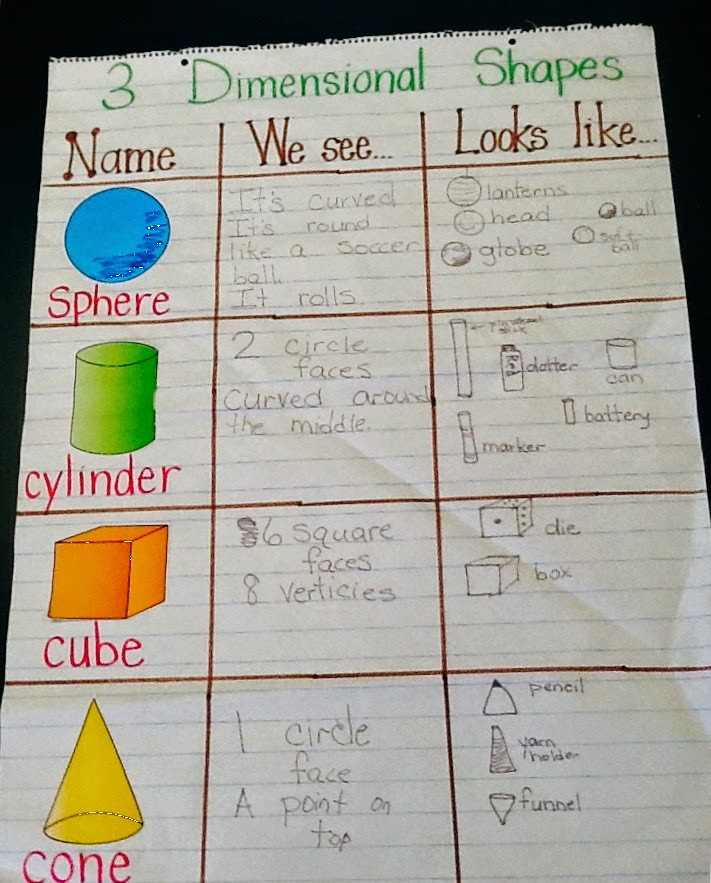 3 Dimensional Shapes
Name
We see...
Looks like...
Sphere
It's curved
It's round
like a soccer
ball.
It rolls.
lanterns
head
ball
globe
ball
cylinder
2 circle
faces
curved around
the middle.
Red
dotter
can
battery
marker
cube
6 square
faces
8 verticies
die
box
cone
1 circle
face
A point on
top
pencil
yarn
holder
funnel